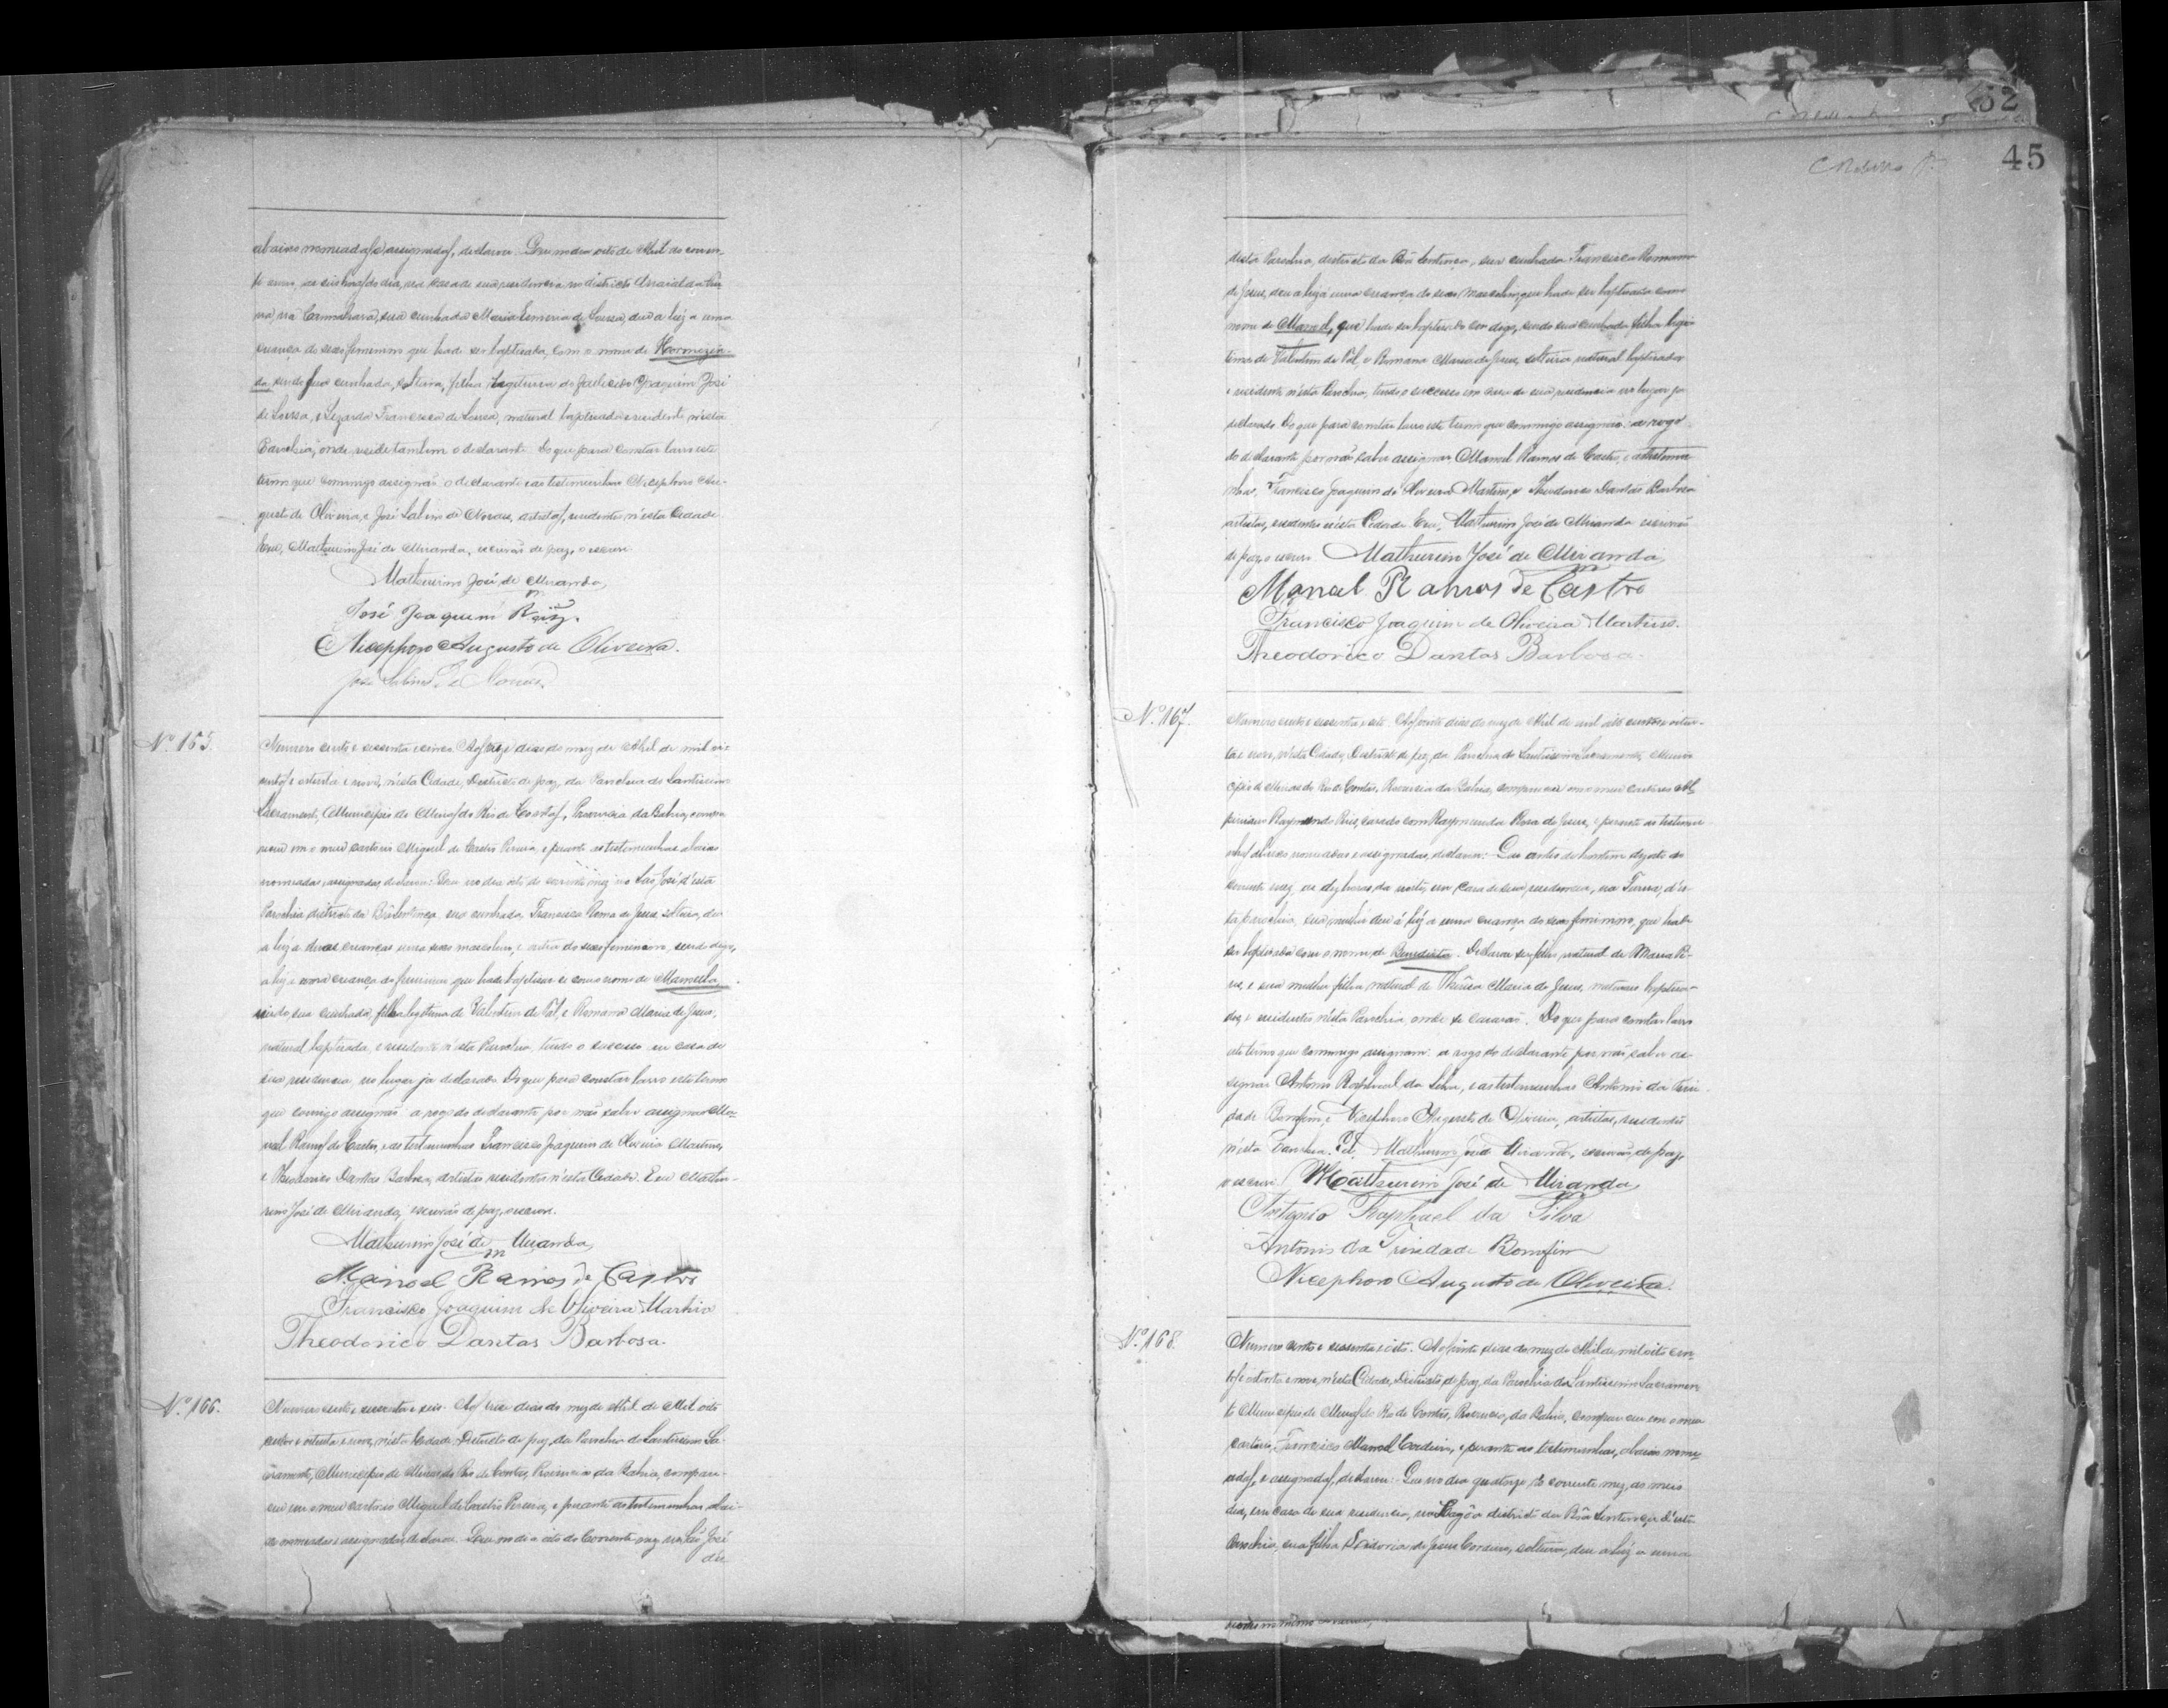 abaixo nomeadas e assignadas, declarou: Que no dia oito de Abril do corren-
te anno, as seis horas do dia, na casa de sua residencia no districto Arraial da
na, na Cannabrava, sua cunhada Maria de Souza, deu a luz a uma
creança do sexo femenino que hade ser baptisada com o nome de Hormezin-
da, sendo sua cunhada, solteira, filha legitima do falicido Joaquim José
de Souza, e Francisca de Souza, natural baptisada e residente n'esta
Parochia, onde reside tambem o declarante. Do que para constar lavro este
termo que commigo assignão o declarante e as testemunhas Nicephoro Au-
gusto de Oliveira, e José Sabino de Novaes, artistas, residentes n'esta Cidade
Eu, Mathurino José de Miranda, escrivão de paz, o escrevi.
Mathurino José de Miranda
José Joaquim
Nicephoro Augusto de Oliveira.
José Sabino de Novaes
Nº 165.
Numero cento e sessenta e cinco. Aos treze dias do mez de Abril de mil oito
centos e oitenta e nove, n'esta Cidade, Districto de paz, da Parochia do Santissimo
Sacramento, Municipio de Minas do Rio de Contas, Provincia da Bahia, compa-
receu em o meu cartorio Miguel de Castro Pereira, e perante as testemunhas abaixo
nomeadas e assignadas, declarou: Que no dia oito do corrente mez no São José d'esta
Parochia districto da Bôa Sentença, sua cunhada, Francisca Roma de Jesus, solteira, deu
a luz a duas creanças uma sexo masculino, e outra do sexo femenino, sendo digo,
a luz a uma creança do femenino que hade baptisar se com o nome de Manoella
sendo sua cunhada, filha legitima de Valentim de Val, e Romana Maria de Jesus,
natural baptisada, e residente n'esta Parochia, tendo o successo em casa de
sua residencia, no lugar ja declarado. Do que para constar lavro este termo
que comigo assignão a rogo do declarante por não saber assignar Ma-
noel Ramos de Castro, e as testemunhas Francisco Joaquim de Oliveira Martins,
e Theodorico Dantas Barbosa, artistas residentes n'esta Cidade. Eu Mathu-
rino José de Miranda, escrivão de paz, o escrevi.
Mathurino José de Miranda
Manoel Ramos de Castro
Francisco Joaquim de Oliveira Martins
Theodorico Dantas Barbosa.
Nº 166.
Numero cento e sessenta e seis. Aos treze dias do mez de Abril de Mil oito
centos e oitenta e nove, n'esta Cidade Districto de paz, da Parochia do Santissimo Sa-
cramento, Municipio de Minas do Rio de Contas, Provincia da Bahia, compare-
ceu em o meu cartorio Miguel de Castro Pereira, e perante as testemunhas, abai-
xo nomeadas e assignadas, declarou: Que no dia oito do Corrente mez no São José
des
52
45
desta Parochia, districto da Bôa Sentença, sua cunhada Francisca Romana
de Jesus, deu a luz a uma creança do sexo masculino, que hade ser baptisada com o
nome de Manoel, que hade ser baptisado com digo, sendo sua cunhada filha legi-
tima de Valentim de Val, e Romana Maria de Jesus, solteira, natural baptisada
e residente n'esta Parochia, tendo o successo em casa de sua residencia no lugar ja
declarado. Do que para constar lavro este termo que commigo assignão: a rogo
do declarante por não saber assignar, Manoel Ramos de Castro, e as testemu-
nhas, Francisco Joaquim de Oliveira Martins, e Theodorico Dantas Barbosa
artistas, residentes n'esta Cidade. Eu, Mathurino José de Miranda escrivão
de paz, o escrevi. Mathurino José de Miranda
Manoel Ramos de Castro
Francisco Joaquim de Oliveira Martins.
Theodorico Dantas Barbosa.
Nº 167.
Numero cento e sessenta e sete. Aos vinte dias do mez de Abril de mil oito centos e oiten-
ta e nove, n'esta Cidade, Districto de paz, da Parochia do Santissimo Sacramento, Muni-
cipio de Minas do Rio de Contas, Provincia da Bahia, compareceu em o meu cartorio
Raymundo Pires, casado com Raymunda Rosa de Jesus, e perante as testemu-
nhas abaixo nomeadas e assignadas, declarou: Que antes de hontem dezoito do
corrente mez, as dez horas da noite, em casa de sua residencia, na Furna, d'es-
ta parochia, sua mulher deu á luz a uma creança do sexo femenino, que hade
ser baptisada com o nome de Benedicta. Declara ser filho natural de Maria Pi-
res, e sua mulher filha natural de Thereza Maria de Jesus, naturaes baptisa-
dos, e residentes n'esta Parochia, onde se casarão. Do que para constar lavro
este termo que commigo assignam: a rogo do declarante por não saber as-
signar Antonio Raphael da Silva, e as testemunhas Antonio da Trin-
dade Bomfim, e Nicephoro Augusto de Oliveira, artistas, residentes
n'esta Parochia. Eu, Mathurino José de Miranda, escrivão de paz,
o escrevi. Mathurino José de Miranda
Antonio Raphael da Silva
Antonio da Trindade Bomfim
Nicephoro Augusto de Oliveira.
Nº 168.
Numero cento e sessenta e oito. Aos vinte dias do mez de Abril de mil oito cen-
tos e oitenta e nove, n'esta Cidade, Districto de paz, da Parochia do Santissimo Sacramen-
to Municipio de Minas do Rio de Contas, Provincia da Bahia, compareceu em o meu
cartorio, Francisco Manoel Cordeiro, e perante as testemunhas, abaixo nome-
adas, e assignadas, declarou: Que no dia quatorze do corrente mez, ao meio
dia, em casa de sua residencia, na Lagôa districto da Bôa Sentença d'esta
Parochia, sua filha de Jesus Cordeiro, solteira, deu a luz a uma